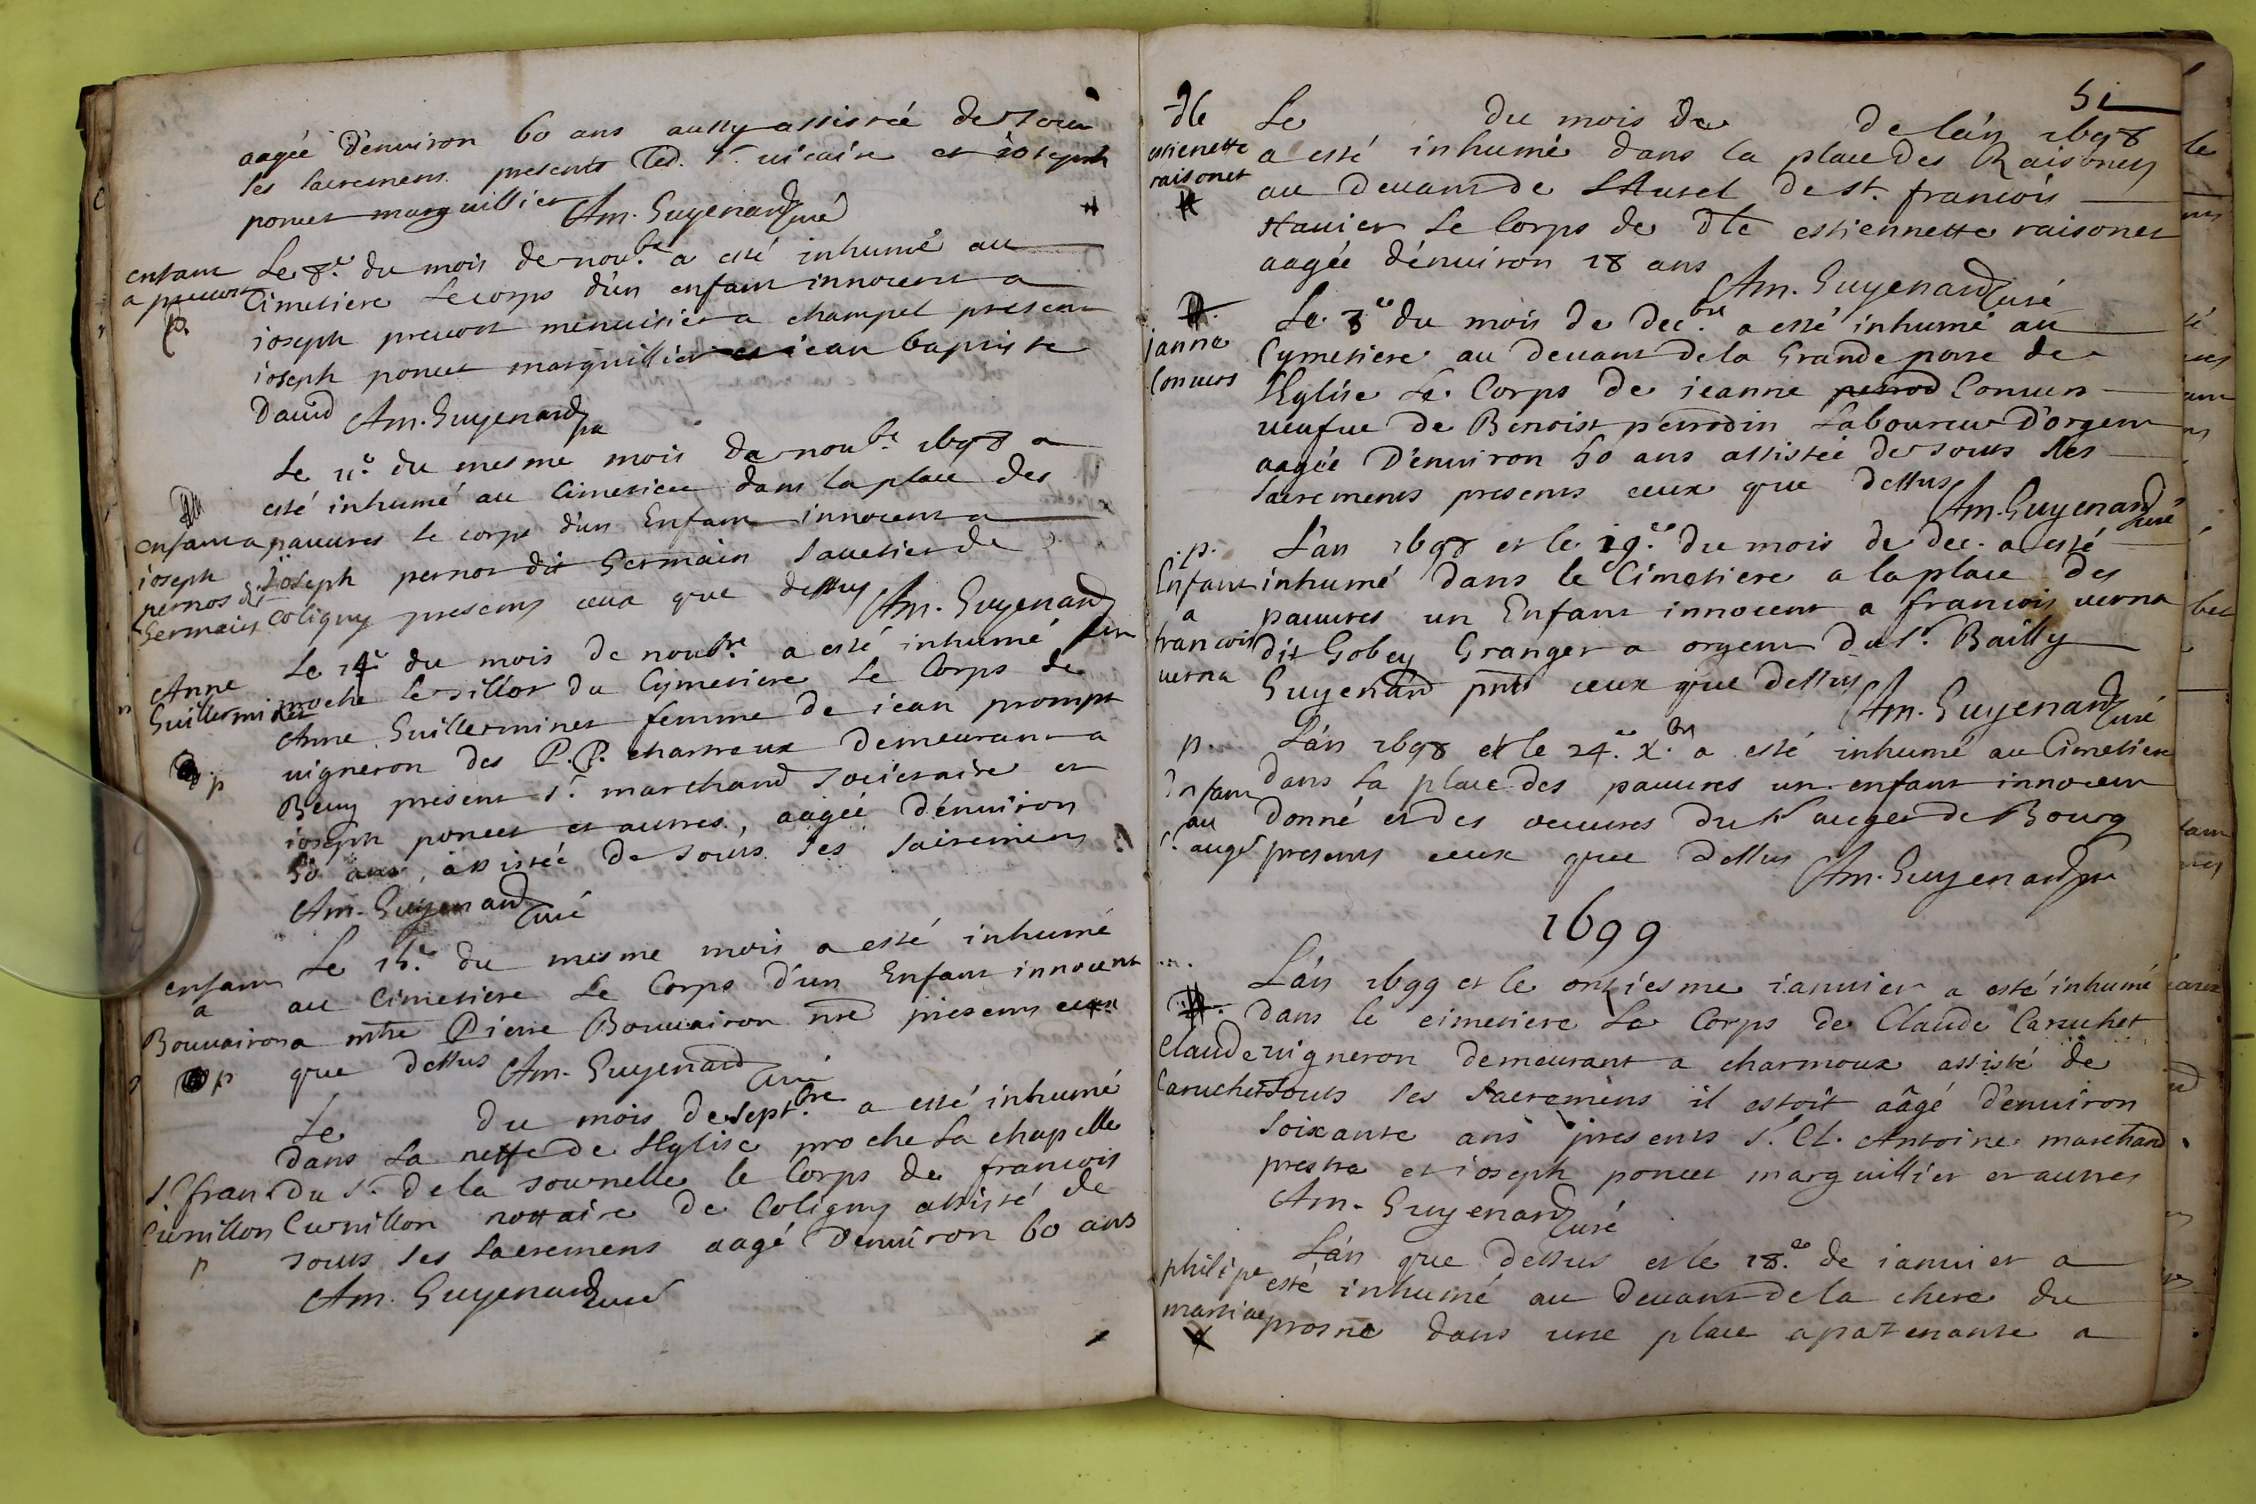 aagée d'enuiron 60 ans aussy assistée de tous
les sacremens presents led. Sr. uicaire et ioseph
poncet marguillier Am. Guyenard curé
enfant
a preuost
p.
Le 8e. du mois de noubre. a esté inhumé au
Cimetiere le corps d'un enfant innocent a
ioseph preuost menuisier a champel present
ioseph poncet marguillier et iean baptiste
Dauid Am. Guyenard
Le 11e. du mesme mois de noubr. 1698 a
esté inhumé au Cimetiere dans la place des
pauures le corps d'un Enfant innocent a
ioseph pernot dit Germain sauetier de
Coligny presens ceux que dessus Am. Guyenard
enfant a
ioseph
pernot dit
Germain
Anne
Guillerminet
p
Le 14e du mois de noubre a esté inhumé
proche le sillor du Cymetiere Le Corps de
Anne Guillerminet femme de iean prompt
uigneron des P.P. chartreux demeurant a
Beny present Sr. marchand societaire et
ioseph poncet et autres, aagée d'enuiron
50 ans, assistée de tous ses sacremens
Am. Guyenard curé
enfant
a
Bouuairon
p
Le 15e. du mesme mois a esté inhumé
au Cimetiere Le Corps d'un Enfant innocent
a mtre Pierre Bouuairon nre presens ceux
que dessus Am. Guyenard curé
Sr. fran.
Curnillon
p
Le du mois de septbre. a esté inhumé
dans la neffe de l'Eglise proche la chapelle
du Sr. de la tournelle le Corps de francois
Curnillon nottaire de Coligny assisté de
tous ses sacremens aagé d'enuiron 60 ans
Am. Guyenard curé
51
dlle
estienette
raisonet
Le du mois de de l'an 1698
a esté inhumé dans la place des Raisonets
au deuant de l'Autel de st. francois
xauier le Corps de dlle estiennette raisonet
aagée d'enuiron 18 ans
Am. Guyenard curé
janne
Conuers
Le 3e du mois de decbre. a esté inhumé au
Cymetiere au deuant de la Grande porte de
l'Eglise le Corps de ieanne perrod Conuers
ueufue de Benoist perrodin Laboureur d'orgent
aagée d'enuiron 50 ans assistée de tous les
sacrements presents ceux que dessus
Am. Guyenard curé
.p.
Enfant
a
francois
uerna
L'an 1698 et le 19e. du mois de dec. a esté
inhumé dans le Cimetiere a la place des
pauures un Enfant innocent a francois uerna
dit Gobey Granger a orgent du Sr. Bailly
Guyenard pnts ceux que dessus
Am. Guyenard curé
p.
Enfant
au
Sr. auger
L'an 1698 et le 24e. Xbre a esté inhumé au Cimetiere
dans la place des pauures un enfant innocent
donné et des oeuures du Sr auger de Bourg
presents ceux que dessus Am. Guyenard
1699
Claude
Caruchet
L'an 1699 et le onziesme ianuier a esté inhumé
dans le cimetiere Le Corps de Claude Caruchet
uigneron demeurant a charmoux assisté de
touts ses sacremens il estoit aâgé d'enuiron
soixante ans presents Sr. Cl. Antoine marchand
prestre et ioseph poncet marguillier et autres
Am. Guyenard curé
philipe
martine
L'an que dessus et le 18e. de ianuier a
esté inhumé au deuant de la chere du
prosne dans une place apartenante a